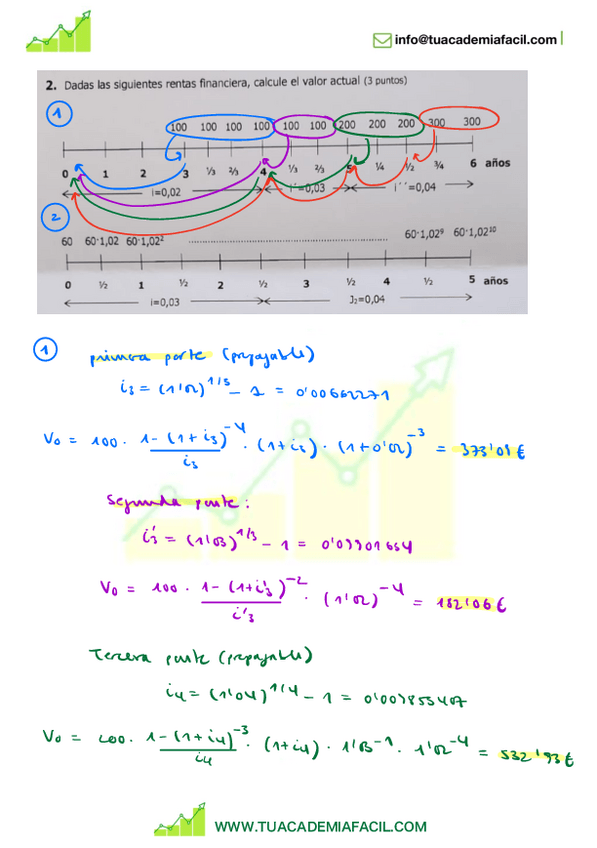 info@tuacademiafacil.com
2. Dadas las siguientes rentas financiera, calcule el valor actual (3 puntos)
1
100 100 100 100 100 100 200 200 200 300 300
0 1 2 3 ⅓ ⅔ 4 ⅓ ⅔ 5 ¼ ½ ¾ 6 años
i=0,02 i´=0,03 i´´=0,04
2
60 60·1,02 60·1,02² ........ 60·1,02⁹ 60·1,02¹⁰
0 ½ 1 ½ 2 ½ 3 ½ 4 ½ 5 años
i=0,03 J₂=0,04
1 primera parte (prepagable)
i₃ = (1'02)^1/3 - 1 = 0'00662271
V₀ = 100 · 1-(1+i₃)⁻⁴ / i₃ · (1+i₃) · (1+0'02)⁻³ = 373'08€
Segunda parte:
i'₃ = (1'03)^1/3 - 1 = 0'00901654
V₀ = 100 · 1-(1+i'₃)⁻² / i'₃ · (1'02)⁻⁴ = 182'06€
Tercera parte (prepagable)
i₄ = (1'04)^1/4 - 1 = 0'009853407
V₀ = 200 · 1-(1+i₄)⁻³ / i₄ · (1+i₄) · 1'03⁻¹ · 1'02⁻⁴ = 532'93€
WWW.TUACADEMIAFACIL.COM